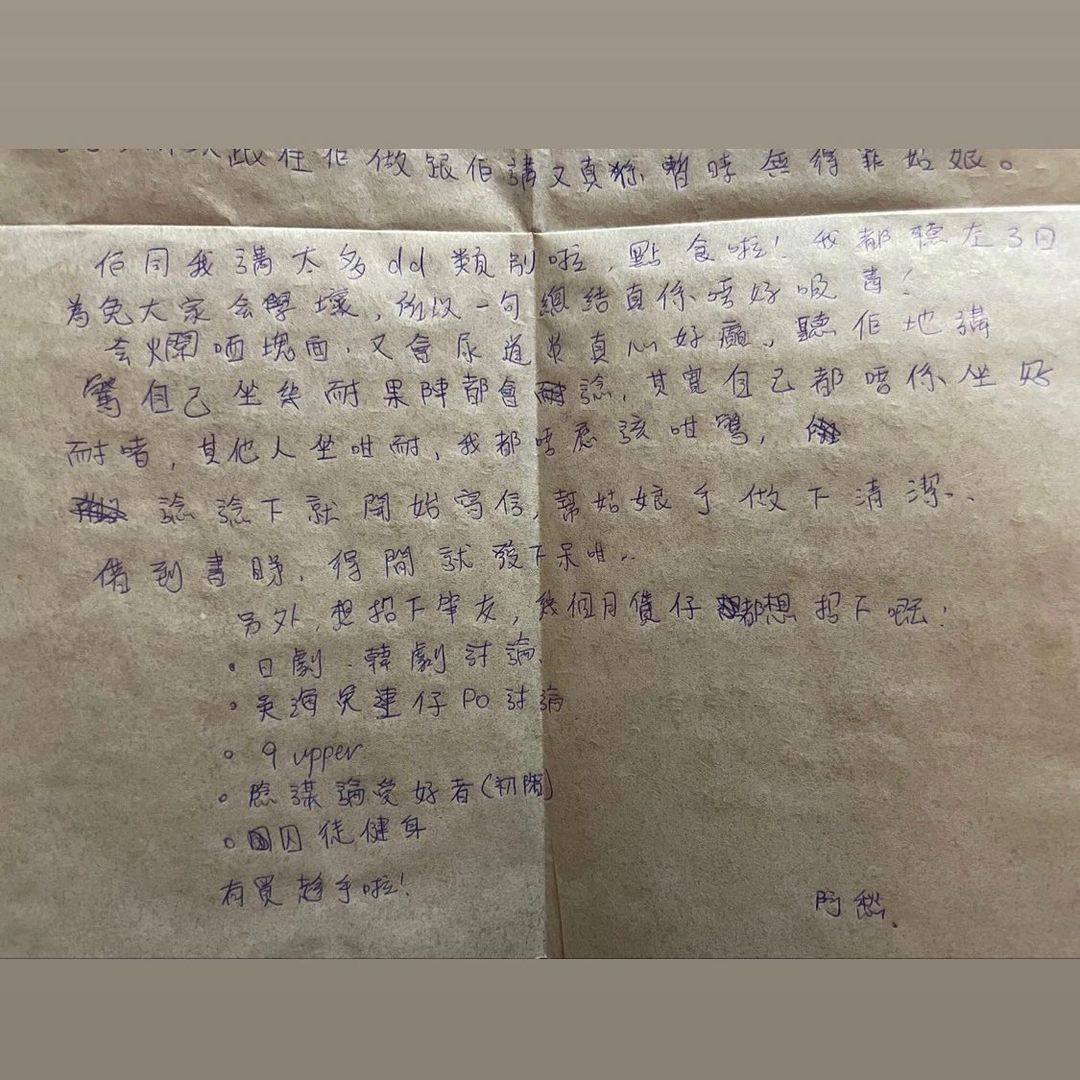 跟住佢做跟佢講又真係暫時無得罪姑娘。
佢同我講太多dd類別啦,點食啦!我都聽左3日
為免大家会學壞,所以一句總結真係唔好吸毒!
会爛哂塊面,又會尿道炎真心好癲、聽佢地講
自己坐幾耐果陣都會諗,其實自己都唔係坐好
耐啫,其他人坐咁耐,我都唔應該咁
諗諗下就開始寫信,幫姑娘手做下清潔..
借到書睇,得閒就發下呆咁..
另外,想招下筆友,幾個月貨仔都想招下嘅!
• 日劇、韓劇討論
• 吳海兒連仔Po討論
• 9 upper
• 陰謀論愛好者(初階)
• 囚徒健身
有買趁手啦!
阿愁.